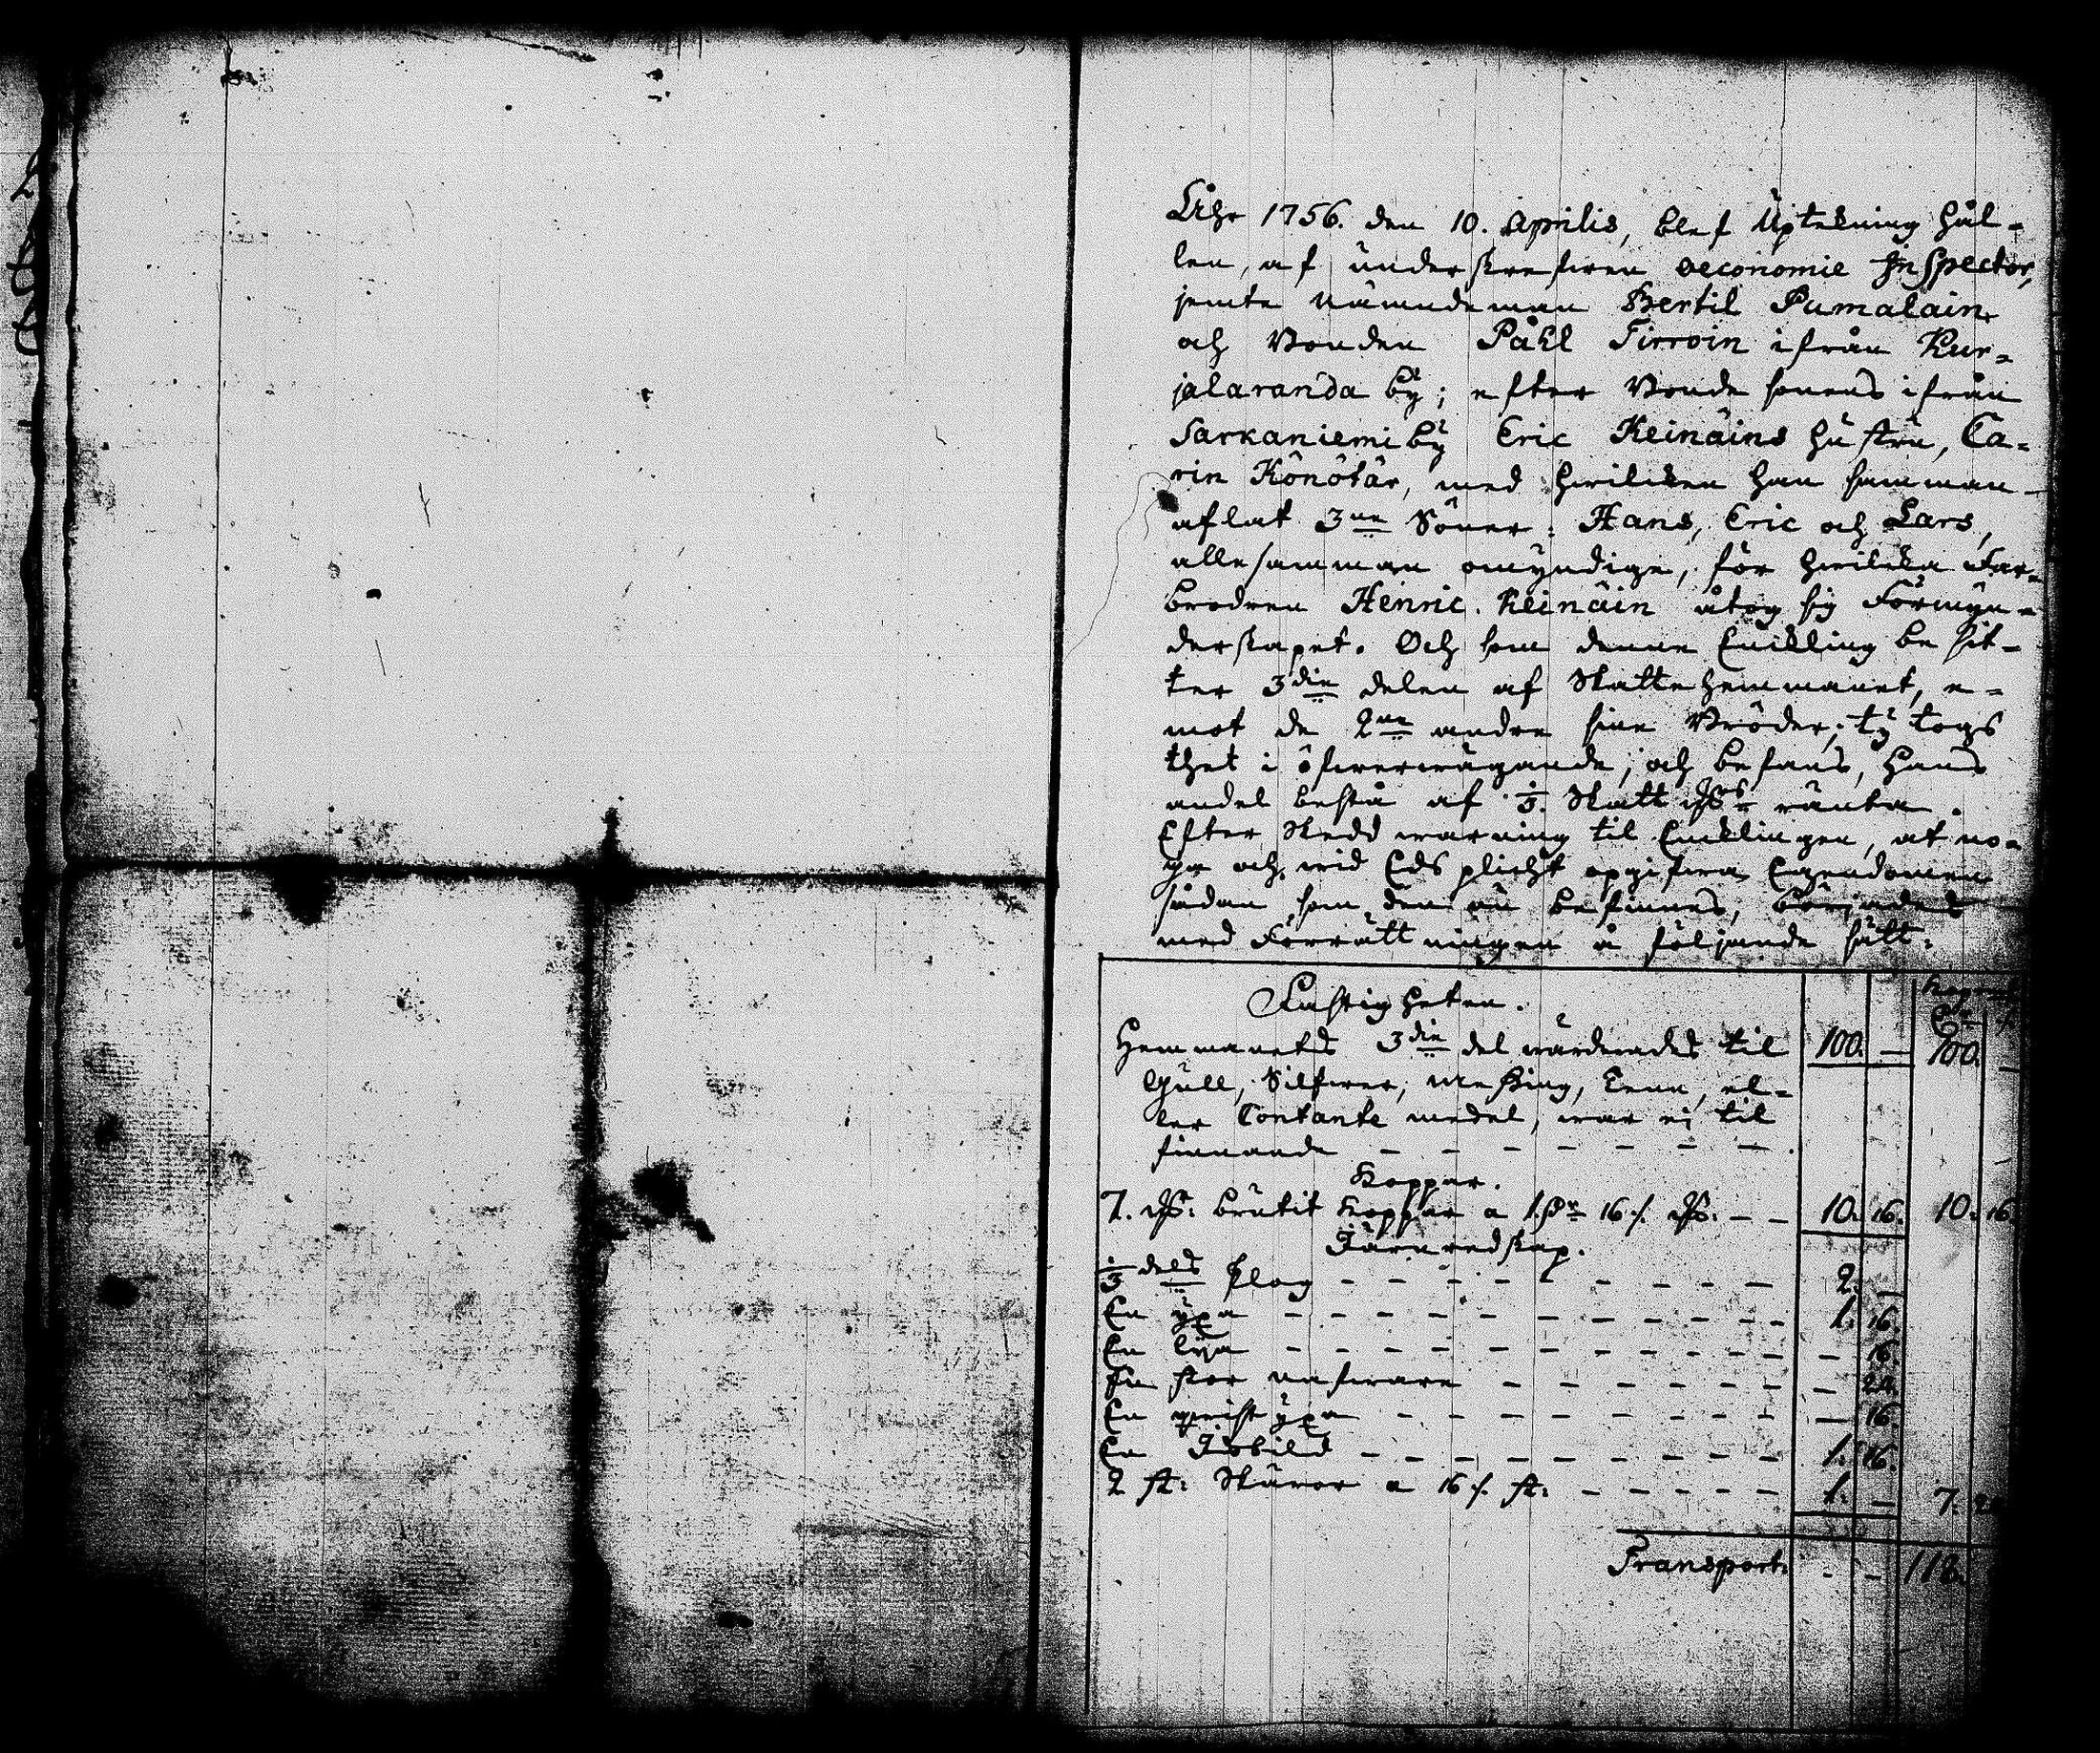 Åhr 1756. den 10. Aprilis, blef Uptekning hål-
len, af underskrefwen oeconomie Inspector,
jemte nämndeman Bertil Pumalain
och Bonden Påhl Tirroin ifrån Kur-
jalaranda by; efter Bonde sonens ifrån
Sarkaniemi by Eric Keinäins hustru, Ca-
rin Könötär, med hwilcken han samman-
aflat 3ne Söner: Hans, Eric och Lars,
allesamman omyndige, för hwilcka Far-
brodren Henric Keinäin åtog sig Förmyn-
derskapet. Och som denne Enckling besit-
ter 3die delen af Skattehemmanet, e-
mot de 2ne andre sine Bröder; ty togs
thet i öfwerwägande, och befans, hans
andel bestå af 1/3 Skatt ränta.
Efter skedd warning til Encklingen, at no-
ga och wid Eds plicht opgifwa Egendomen
sådan som den nu befinnes, börjades
med Förrättningen å följande sätt:
Fastigheten.
Hemmanets 3die del wärderades til 100. — 100. —
Gull, Silfwer, Messing, Tenn, el-
ler Contante medel, war ej til
finnande - - - - - - -
Koppar.
7. ℔: brukit Koppar a 1. Dr 16 /. ℔. - - 10. 16. 10. 16.
Järnredskap.
1/3 dels plog - - - - - - - - 2. —
En yxa - - - - - - - - 1. 16.
En lya - - - - - - - - — 16.
En stor nafware - - - - - - — 24.
En yxa - - - - - - - — 16.
En Isbill - - - - - - - - 1. 16.
2 st: Skäror a 16 /. st: - - - - - 1. — 7.
Transport. - - 118.